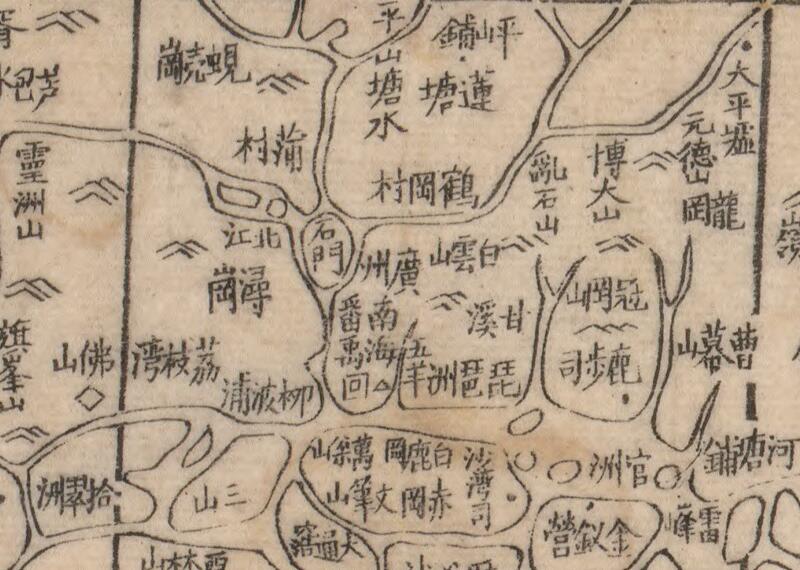 平山塘水
平山鋪
蓮塘
蜆売崗
蒲村
鶴岡村
大平墟
元德山
龍岡
博大山
亂石山
靈洲山
北江
潯崗
石門
廣州
白雲山
甘溪
冠岡山
鹿步司
南海
番禹
回
五羊
琵琶洲
曹幕山
佛山
荔枝湾
柳波浦
旗峯山
河塘鋪
官洲
沙湾司
白鹿岡
赤岡
萬梁山
文筆山
三山
拾翠洲
大通滘
金釵營
雷峰